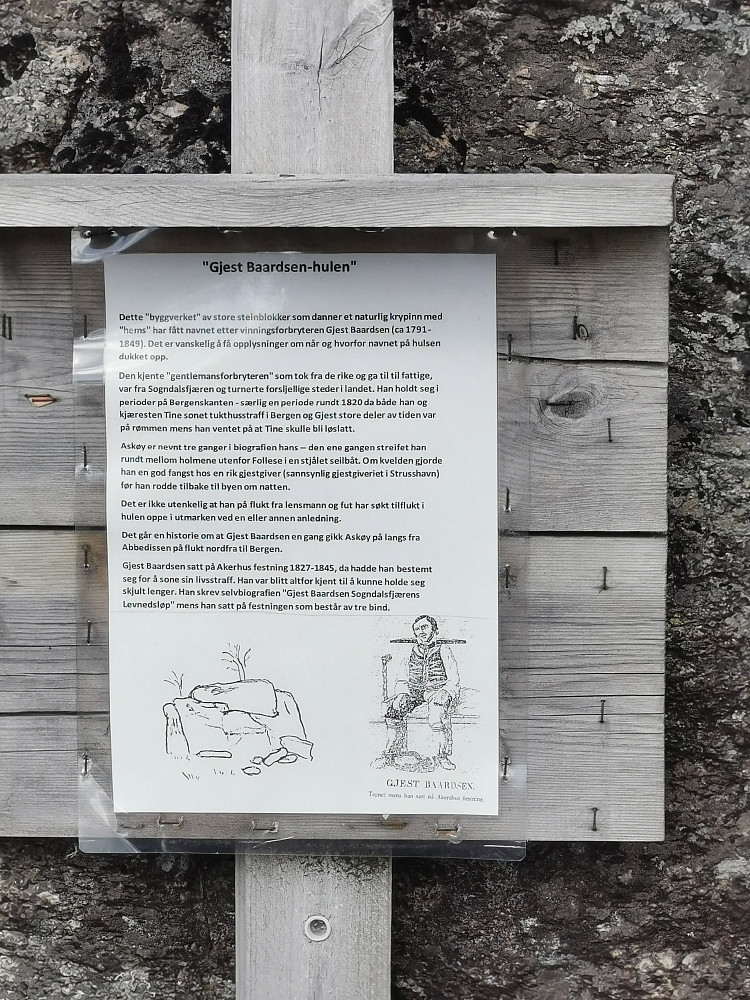 "Gjest Baardsen-hulen"
Dette "byggverket" av store steinblokker som danner et naturlig krypinn med
"hems" har fått navnet etter vinningsforbryteren Gjest Baardsen (ca 1791-
1849). Det er vanskelig å få opplysninger om når og hvorfor navnet på hulsen
dukket opp.
Den kjente "gentlemansforbryteren" som tok fra de rike og ga til til fattige,
var fra Sogndalsfjæren og turnerte forsljellige steder i landet. Han holdt seg i
perioder på Bergenskanten - særlig en periode rundt 1820 da både han og
kjæresten Tine sonet tukthusstraff i Bergen og Gjest store deler av tiden var
på rømmen mens han ventet på at Tine skulle bli løslatt.
Askøy er nevnt tre ganger i biografien hans – den ene gangen streifet han
rundt mellom holmene utenfor Follese i en stjålet seilbåt. Om kvelden gjorde
han en god fangst hos en rik gjestgiver (sannsynlig gjestgiveriet i Strusshavn)
før han rodde tilbake til byen om natten.
Det er ikke utenkelig at han på flukt fra lensmann og fut har søkt tilflukt i
hulen oppe i utmarken ved en eller annen anledning.
Det går en historie om at Gjest Baardsen en gang gikk Askøy på langs fra
Abbedissen på flukt nordfra til Bergen.
Gjest Baardsen satt på Akerhus festning 1827-1845, da hadde han bestemt
seg for å sone sin livsstraff. Han var blitt altfor kjent til å kunne holde seg
skjult lenger. Han skrev selvbiografien "Gjest Baardsen Sogndalsfjærens
Levnedsløp" mens han satt på festningen som består av tre bind.
GJEST BAARDSEN.
Tegnet mens han satt på Akershus festning.